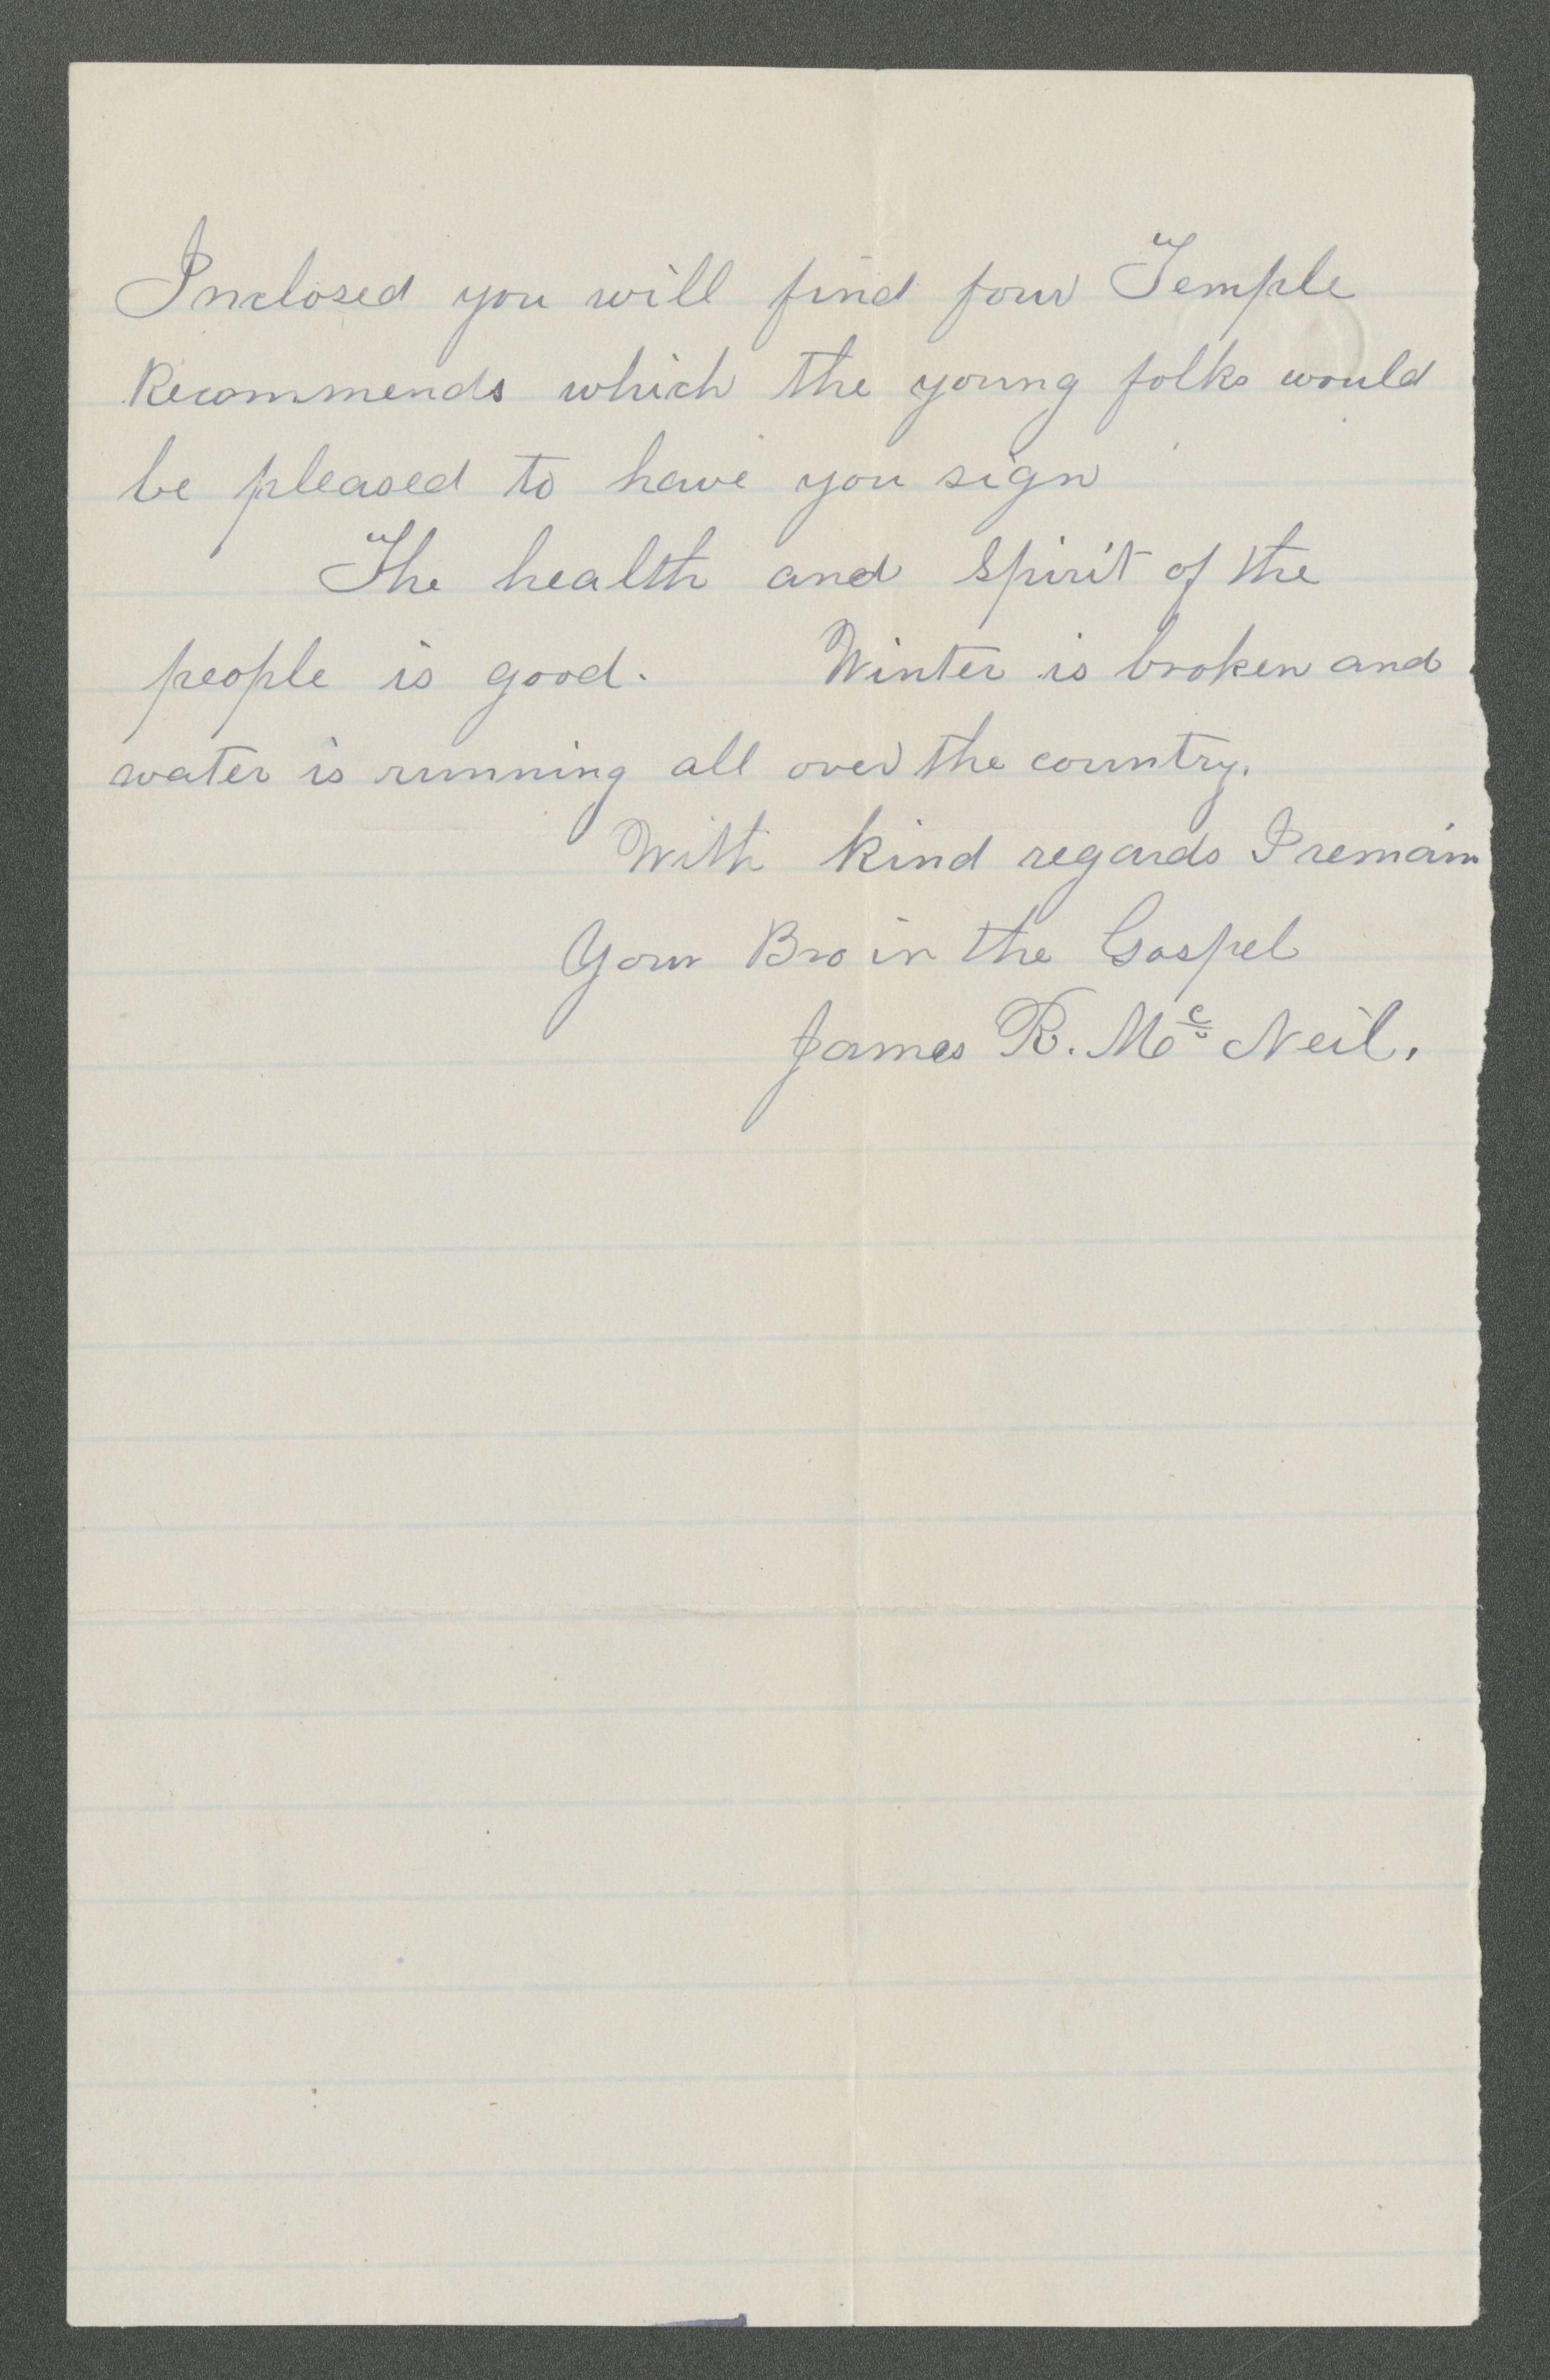 Inclosed you will find four Temple
Recommends which the young folks would
be pleased to have you sign
The health and Spirit of the
people is good. Winter is broken and
water is running all over the country.
With kind regards I remain
Your Bro in the Gospel
James R. Mc Neil.